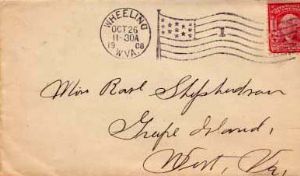 WHEELING
OCT 26
11-30A
1908
W.VA.
1
Miss Rose Shepherdson
Grape Island,
West, Va,